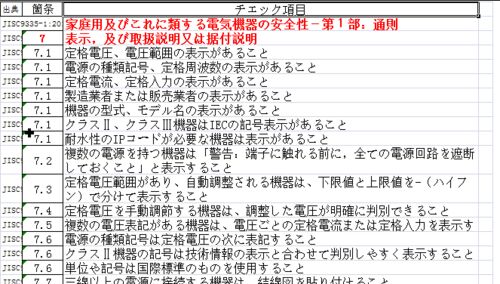 出典 箇条 チェック項目
JISC9335-1:20 家庭用及びこれに類する電気機器の安全性－第１部：通則
JISC 7 表示，及び取扱説明又は据付説明
JISC 7.1 定格電圧、電圧範囲の表示があること
JISC 7.1 電源の種類記号、定格周波数の表示があること
JISC 7.1 定格電流、定格入力の表示があること
JISC 7.1 製造業者または販売業者の表示があること
JISC 7.1 機器の型式、モデル名の表示があること
JISC 7.1 クラスⅡ、クラスⅢ機器はIECの記号表示があること
JISC 7.1 耐水性のIPコードが必要な機器は表示があること
JISC 7.2 複数の電源を持つ機器は「警告：端子に触れる前に，全ての電源回路を遮断
しておくこと」と表示すること
JISC 7.3 定格電圧範囲があり、自動調整される機器は、下限値と上限値を-（ハイフ
ン）で分けて表示すること
JISC 7.4 定格電圧を手動調節する機器は、調整した電圧が明確に判別できること
JISC 7.5 複数の電圧表記がある機器は、電圧ごとの定格電流または定格入力を表示す
JISC 7.6 電源の種類記号は定格電圧の次に表記すること
JISC 7.6 クラスⅡ機器の記号は技術情報の表示と合わせて判別しやすく表示すること
JISC 7.6 単位や記号は国際標準のものを使用すること
JISC 7.7 三線以上の電源に接続する機器は、結線図を貼り付けること